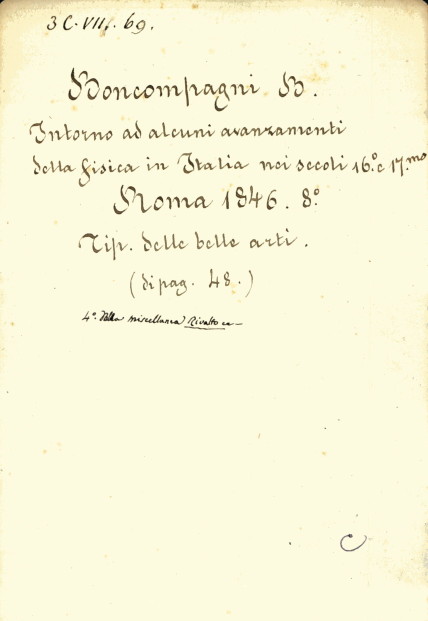 3 C. VII. 69.
Boncompagni B.
Intorno ad alcuni avanzamenti
della fisica in Italia nei secoli 16.º e 17.mo
Roma 1846. 8º
Tip. delle belle arti.
(di pag. 48.)
4º. Della miscellanea
C